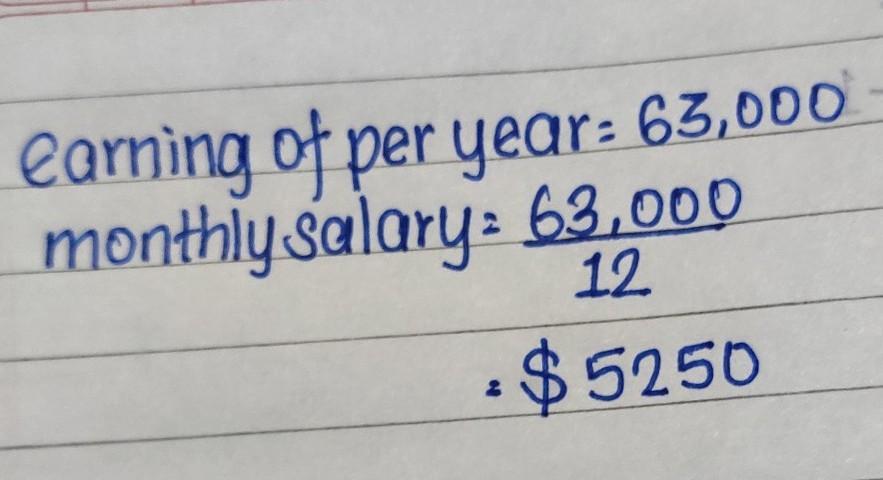 earning of per year = 63,000
monthly salary = 63,000
12
= $5250